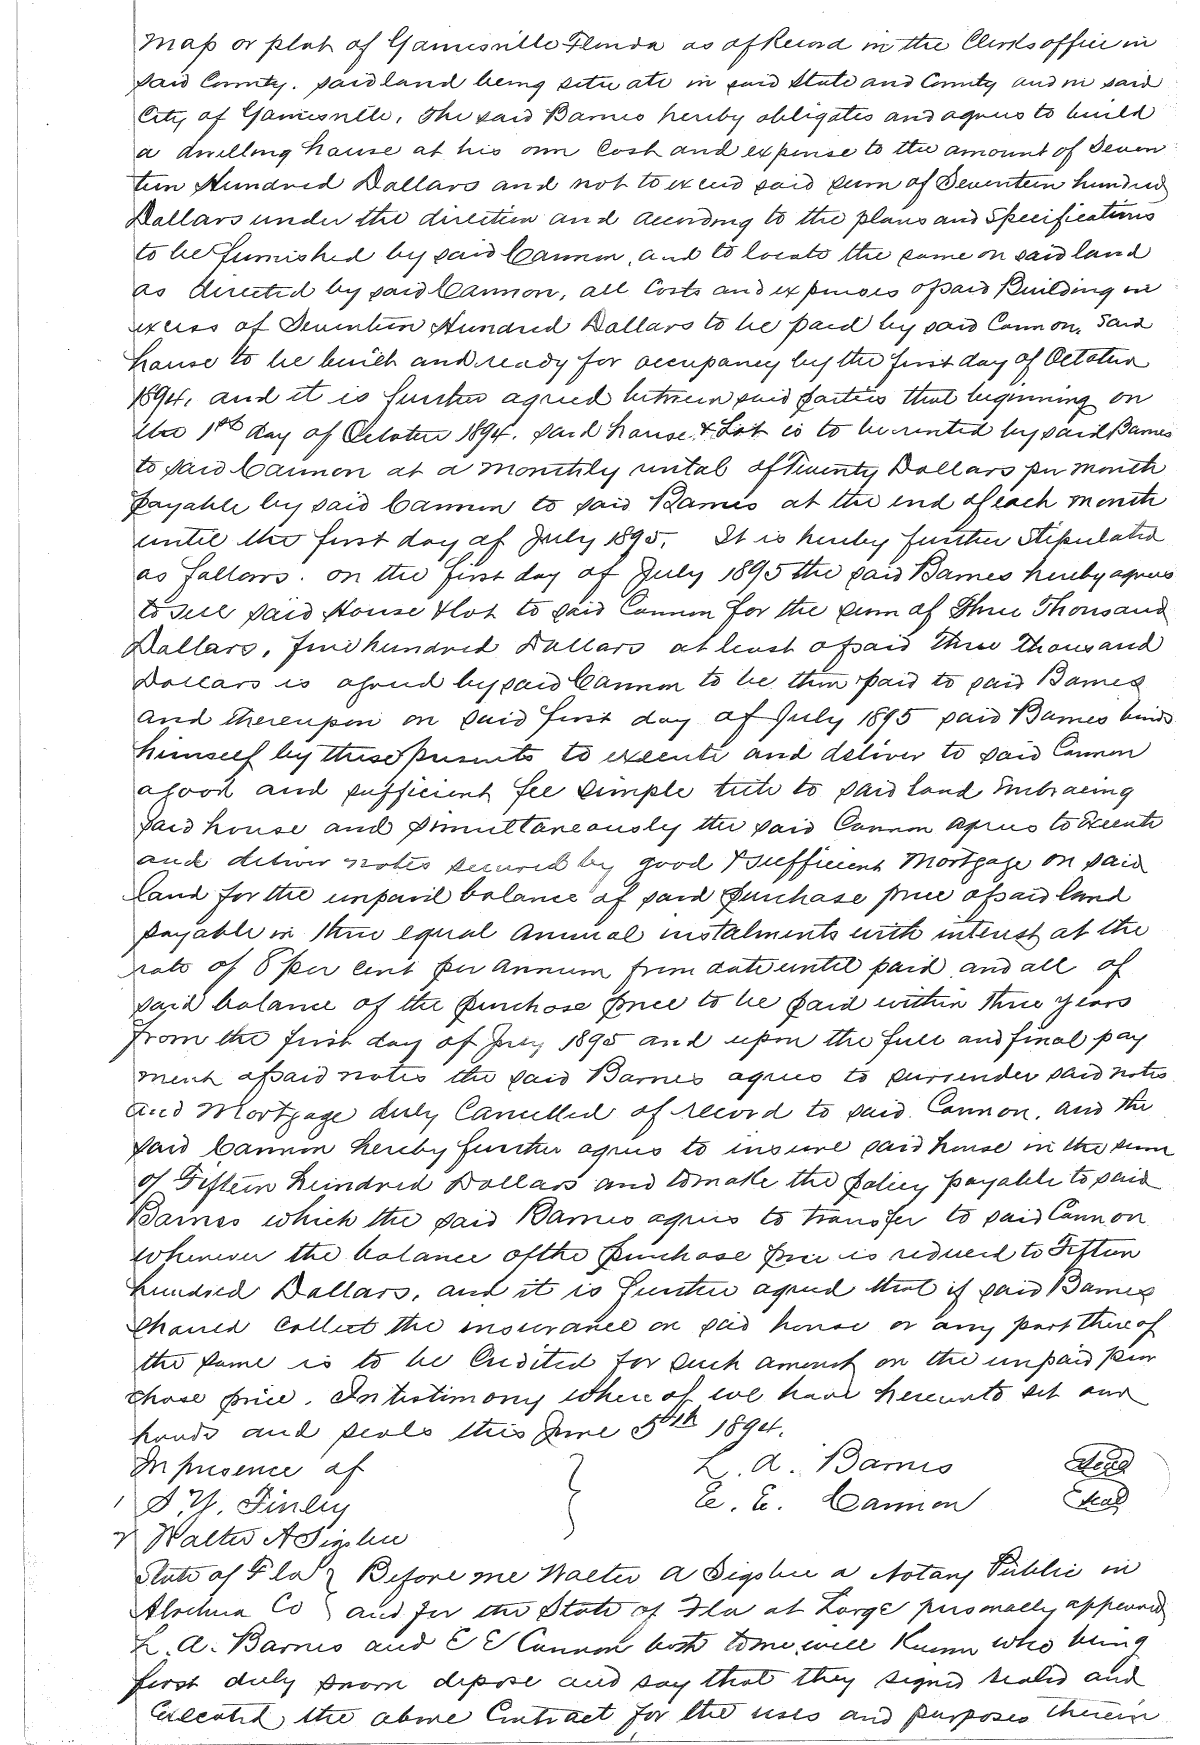 Map or plat of Gainesville Florida as of Record in the Clerks office in
said County. said land being situate in said State and County and in said
City of Gainesville, The said Barnes hereby obligates and agrees to build
a dwelling house at his own Cost and expense to the amount of Seven
teen Hundred Dollars and not to exceed said sum of Seventeen hundred
Dollars under the direction and according to the plans and Specifications
to be furnished by said Cannon, and to locate the same on said land
as directed by said Cannon, all Costs and expenses of said Building in
excess of Seventeen Hundred Dollars to be paid by said Cannon, Said
house to be built and ready for occupancy by the first day of October
1894, and it is further agreed between said parties that beginning on
the 1st day of October 1894. said house & Lot is to be rented by said Barnes
to said Cannon at a monthly rental of Twenty Dollars per month
payable by said Cannon to said Barnes at the end of each month
until the first day of July 1895, It is hereby further Stipulated
as follows. on the first day of July 1895 the said Barnes hereby agrees
to sell said House & Lot to said Cannon for the sum of Three Thousand
Dollars, five hundred Dollars at least of said three thousand
Dollars is agreed by said Cannon to be then paid to said Barnes
and thereupon on said first day of July 1895 said Barnes binds
himself by these presents to execute and deliver to said Cannon
a good and sufficient fee simple title to said land Embracing
said house and simultaneously the said Cannon agrees to Execute
and deliver notes secured by good & sufficient Mortgage on said
land for the unpaid balance of said purchase price of said land
payable in three equal annual instalments with interest at the
rate of 8 per cent per annum from date until paid and all of
said balance of the purchase price to be paid within three years
from the first day of July 1895 and upon the full and final pay
ment of said notes the said Barnes agrees to surrender said notes
and Mortgage duly Cancelled of record to said Cannon, and the
said Cannon hereby further agrees to insure said house in the sum
of Fifteen hundred Dollars and to make the policy payable to said
Barnes which the said Barnes agrees to transfer to said Cannon
whenever the balance of the purchase price is reduced to Fifteen
hundred Dollars, and it is further agreed that if said Barnes
should Collect the insurance on said house or any part thereof
the same is to be Credited for such amount on the unpaid pur
chase price. In testimony where of we have hereunto set our
hands and seals this June 5th 1894.
In presence of } L. A. Barnes Seal
1 J. Y. Finley E. E. Cannon Seal
2 Walter A Sigsbee
State of Fla } Before me Walter A Sigsbee a Notary Public in
Alachua Co } and for the State of Fla at Large personally appeared
L. A. Barnes and E E Cannon both to me well Known who being
first duly sworn depose and say that they signed sealed and
Executed the above Contract for the uses and purposes therein